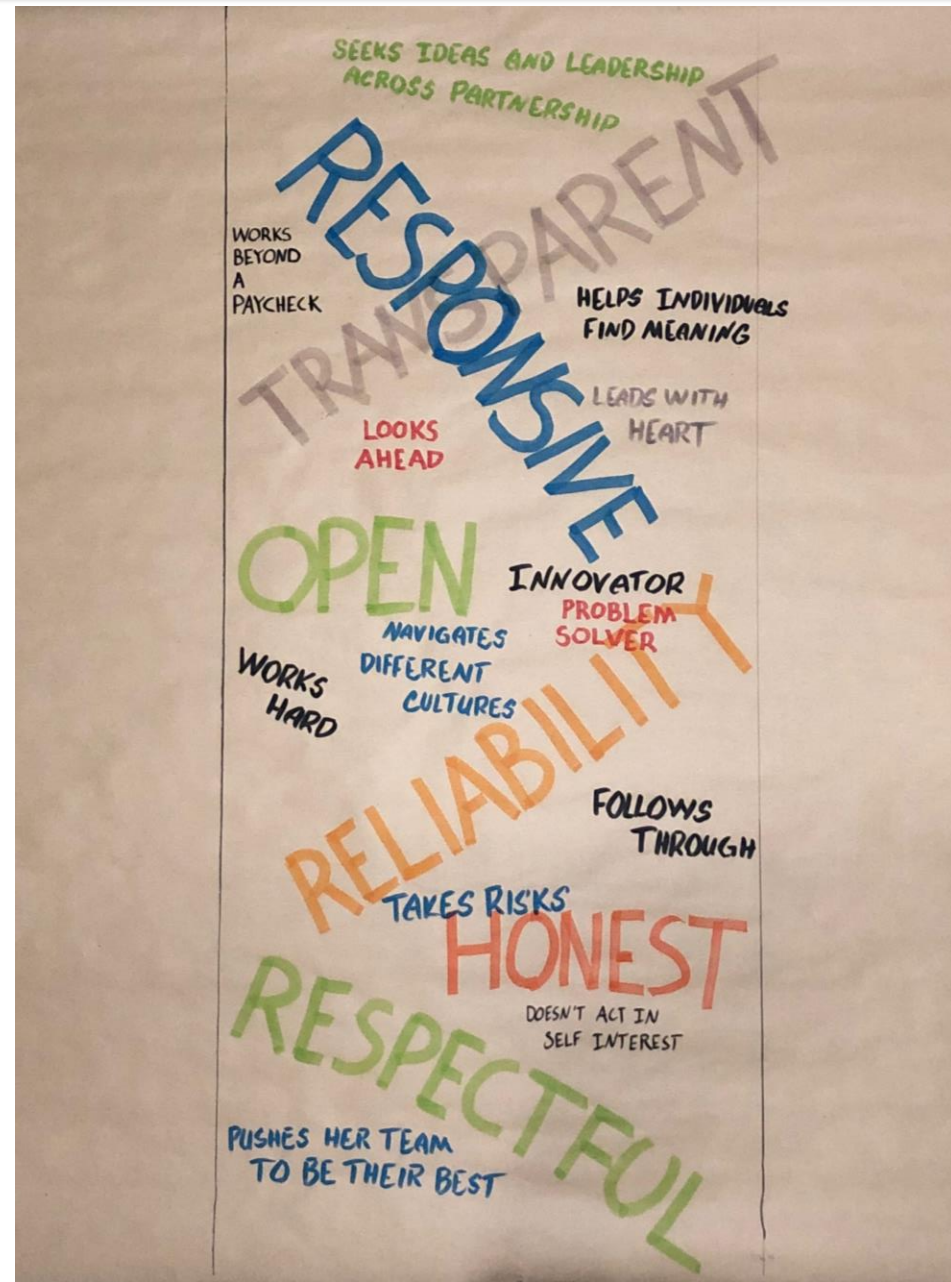 SEEKS IDEAS AND LEADERSHIP
ACROSS PARTNERSHIP
TRANSPARENT
RESPONSIVE
WORKS
BEYOND
A
PAYCHECK
HELPS INDIVIDUALS
FIND MEANING
LEADS WITH
HEART
LOOKS
AHEAD
OPEN
INNOVATOR
PROBLEM
SOLVER
NAVIGATES
DIFFERENT
CULTURES
WORKS
HARD
RELIABILITY
FOLLOWS
THROUGH
TAKES RISKS
HONEST
DOESN'T ACT IN
SELF INTEREST
RESPECTFUL
PUSHES HER TEAM
TO BE THEIR BEST